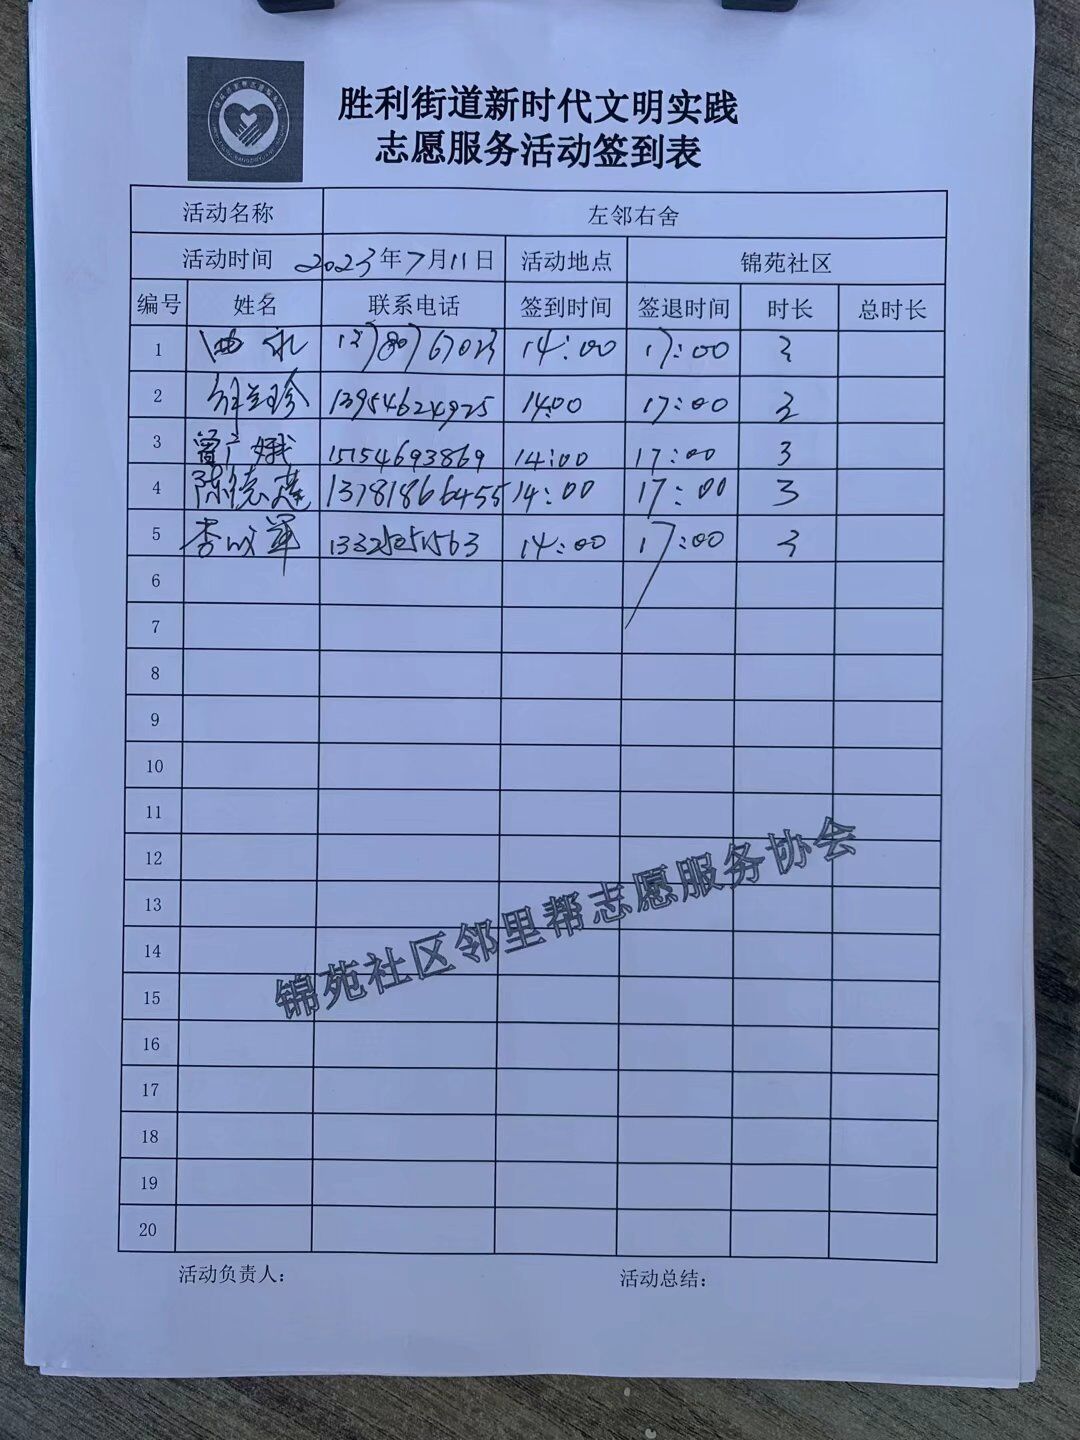 胜利街道新时代文明实践
志愿服务活动签到表
活动名称 左邻右舍
活动时间 2023年7月11日 活动地点 锦苑社区
编号 姓名 联系电话 签到时间 签退时间 时长 总时长
1 14:00 17:00 3
2 13954624925 14:00 17:00 3
3 曾广娥 15154693869 14:00 17:00 3
4 陈德莲 13781866455 14:00 17:00 3
5 14:00 17:00 3
6
7
8
9
10
11
12
13
14
15
16
17
18
19
20
锦苑社区邻里帮志愿服务协会
活动负责人： 活动总结：